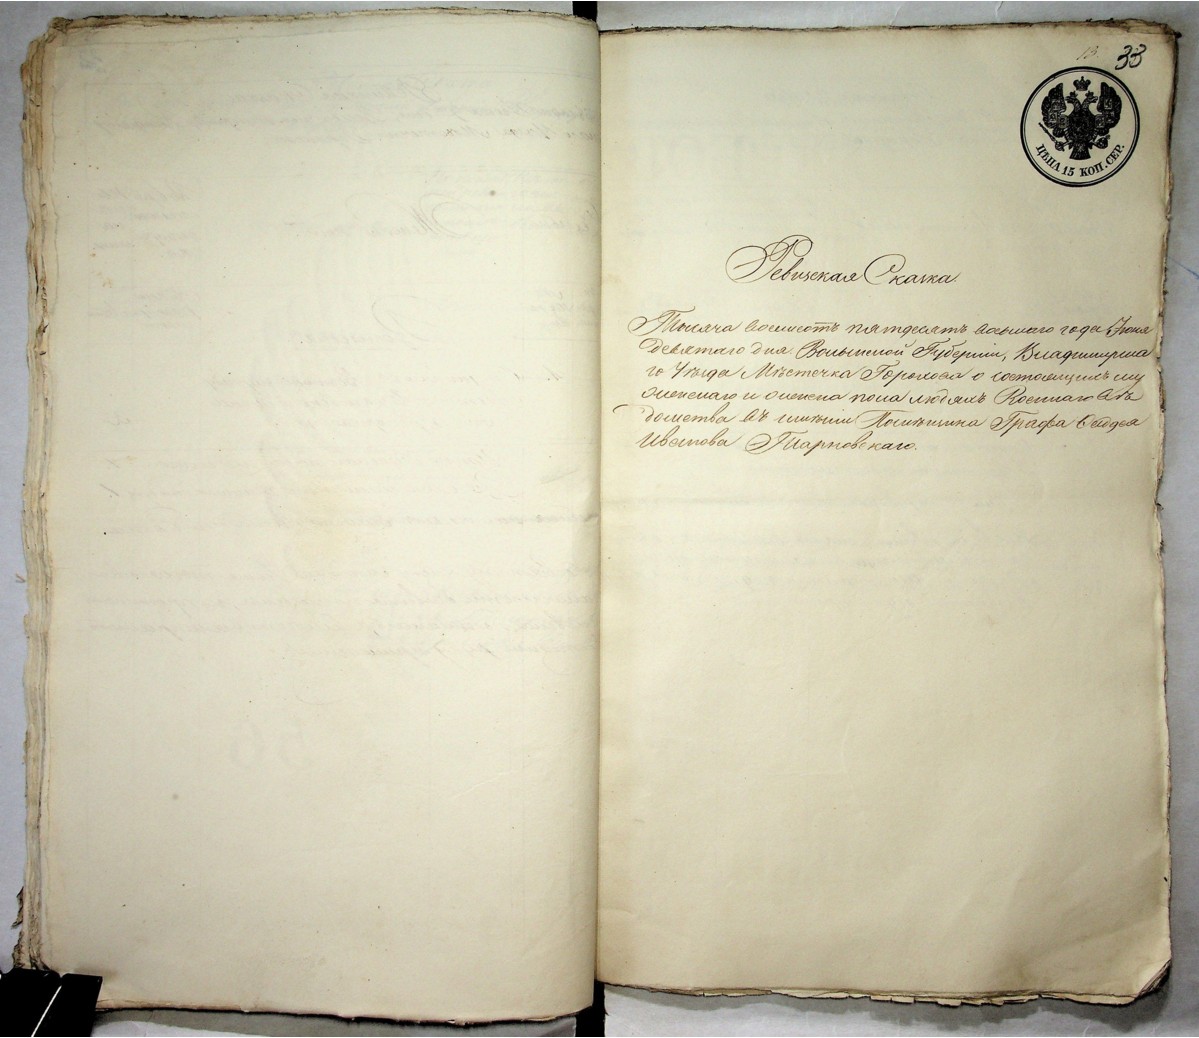 13.
33
ЦѢНА 15 КОП. СЕР.
Ревизская Сказка.
Тысяча восемсотъ пятдесятъ восьмаго года Іюня
девятаго дня Волынской Губерніи, Владимірска
го Уѣзда Мѣстечка Горохова о состоящихъ му
жескаго и женска пола людяхъ Военнаго вѣ
домства въ имѣніи Помѣщика Графа
Иванова Тарновскаго.